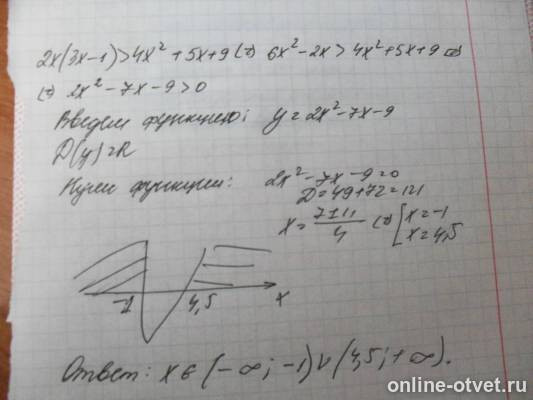 2x(3x-1)>4x²+5x+9 ⇔ 6x²-2x>4x²+5x+9 ⇔
⇔ 2x²-7x-9>0
Введем функцию: y=2x²-7x-9
D(y)=R
Нули функции: 2x²-7x-9=0
D=49+72=121
x=(7±11)/4 ⇔ [x=-1
x=4,5
-1 4,5 x
Ответ: x∈(-∞;-1)∪(4,5;+∞).
online-otvet.ru